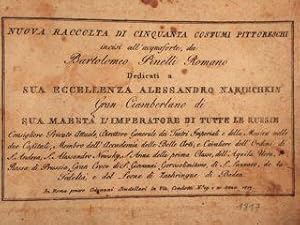 NUOVA RACCOLTA DI CINQUANTA COSTUMI PITTORESCHI
incisi all'acquaforte, da
Bartolomeo Pinelli Romano
Dedicati a
SUA ECCELLENZA ALESSANDRO NARISCHKIN
Gran Ciamberlano di
SUA MAESTÀ L'IMPERATORE DI TUTTE LE RUSSIE
Consigliere Privato Attuale, Direttore Generale dei Teatri Imperiali e della Musica nelle
due Capitali, Membro dell'Accademia delle Belle Arti, e Cavaliere dell'Ordine di
S. Andrea, S. Alessandro Newsky, S. Anna della prima Classe, dell'Aquila Nera, e
Rossa di Prussia, Gran Croce di S. Giovanni Gerosolimitano, di
Fedeltà, e del Leone di Zaehringue di Baden
In Roma presso Giovanni Scudellari in Via Condotti anno 1817
1817